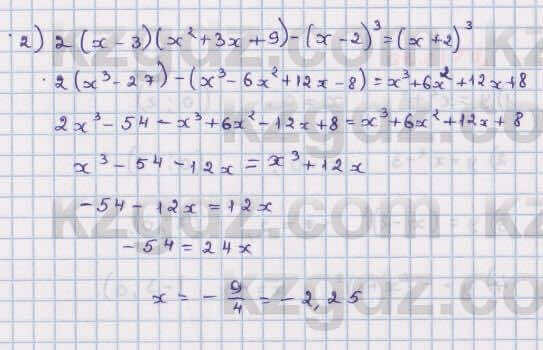 2) 2(x-3)(x²+3x+9)-(x-2)³=(x+2)³
2(x³-27)-(x³-6x²+12x-8)=x³+6x²+12x+8
2x³-54-x³+6x²-12x+8=x³+6x²+12x+8
x³-54-12x=x³+12x
-54-12x=12x
-54=24x
x=-9/4=-2,25